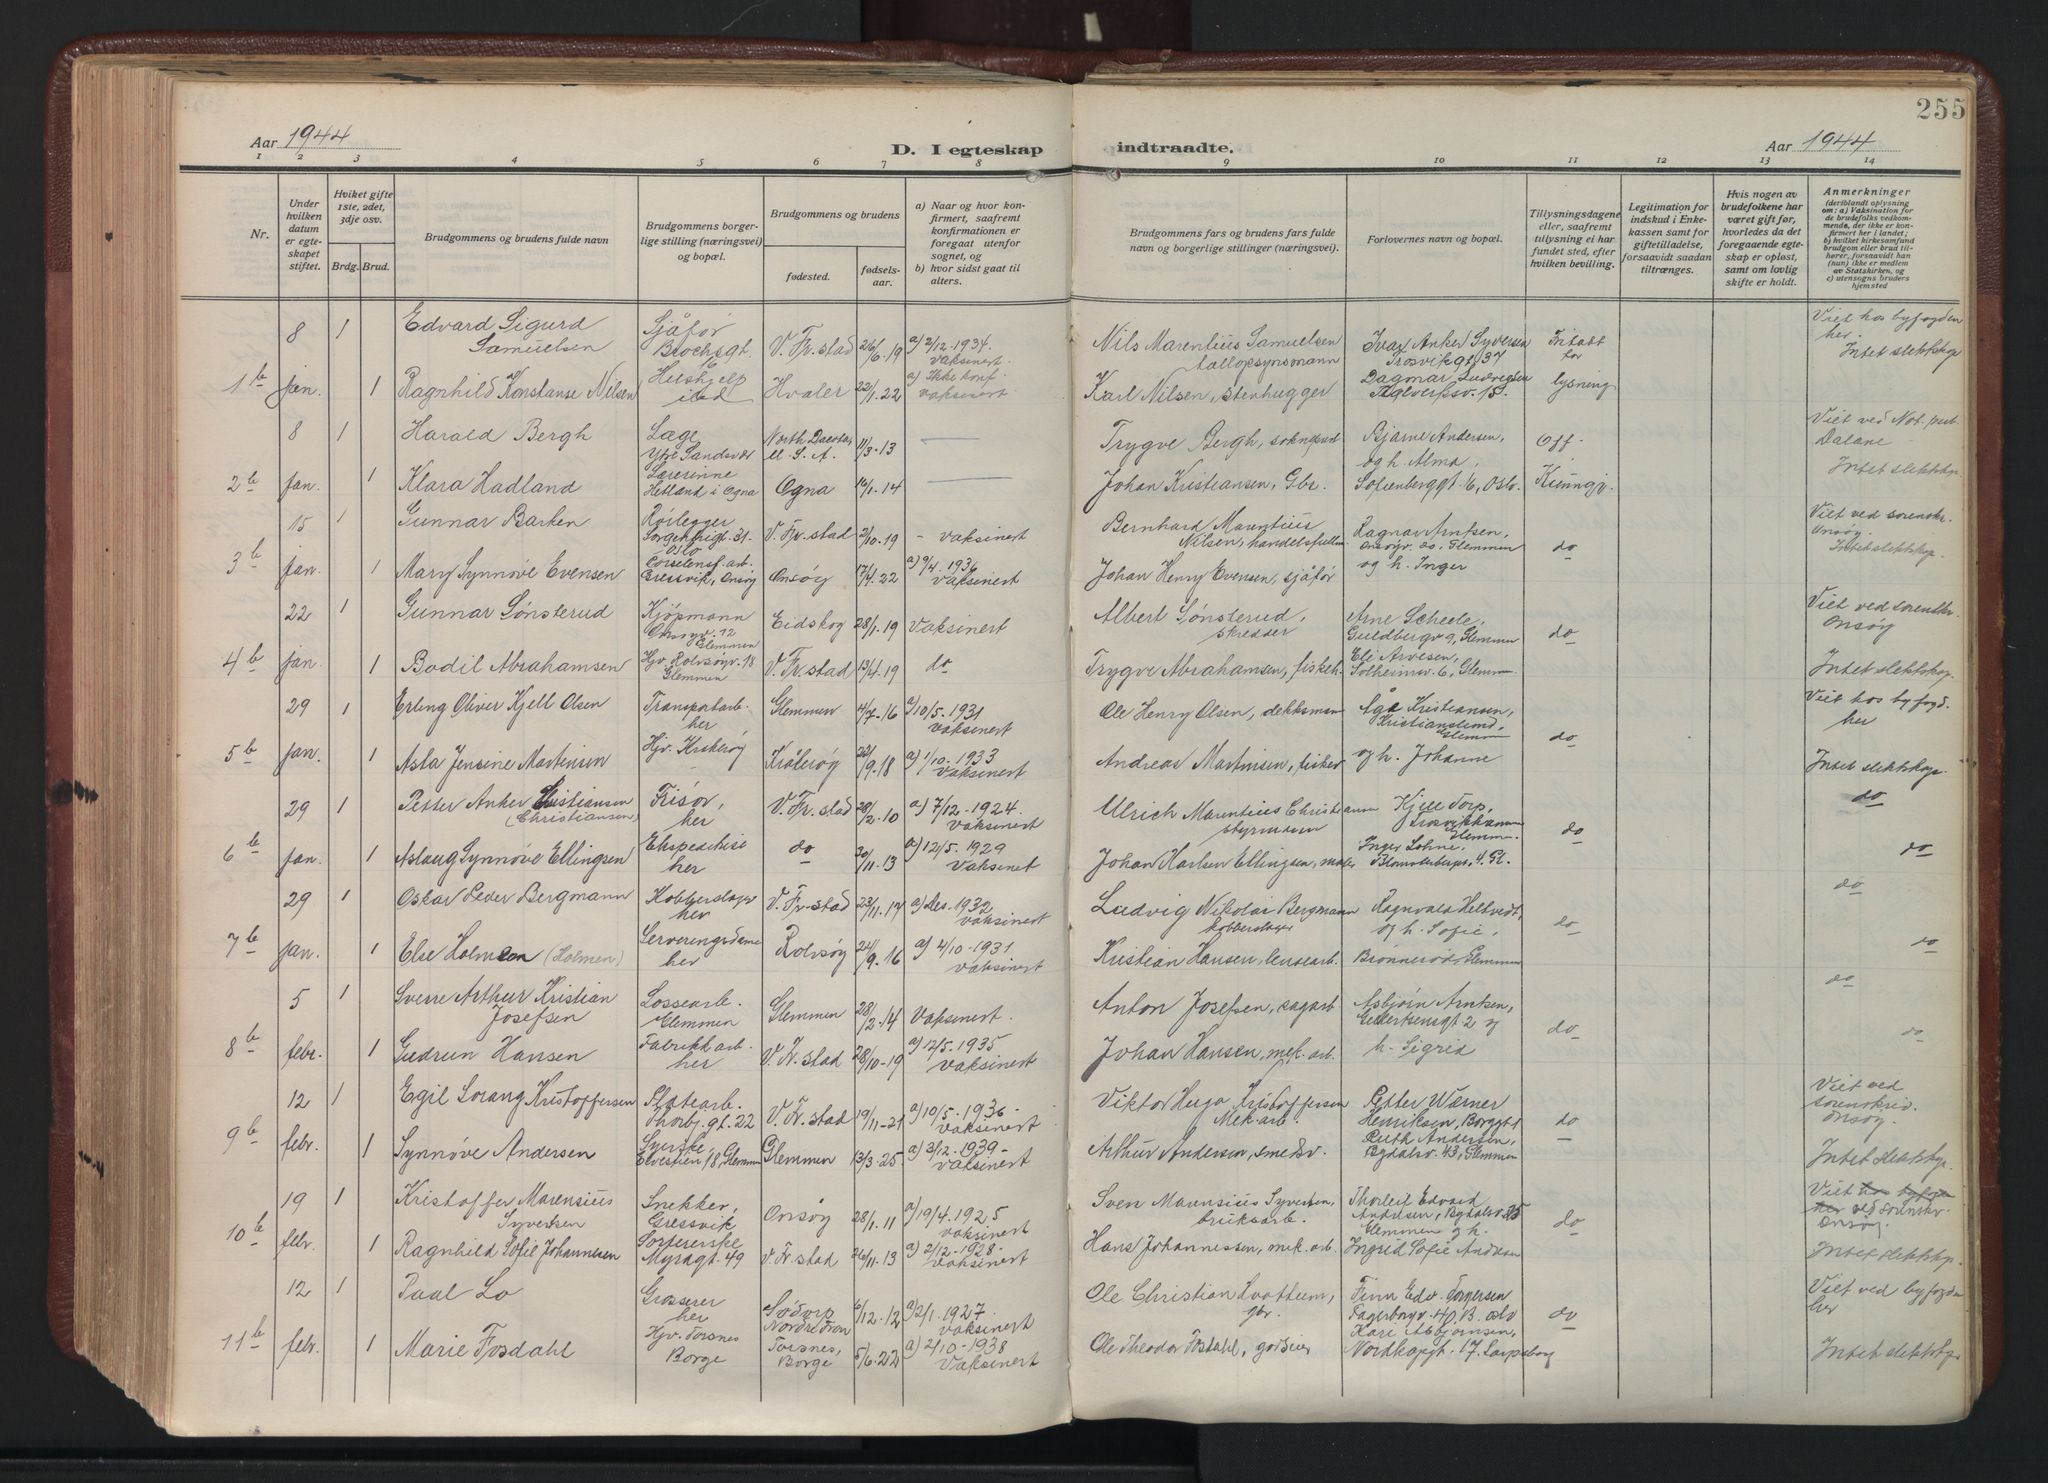 255
Aar 1944
D. I egteskap indtraadte.
Aar 1944
1 2 3 4 5 6 7 8 9 10 11 12 13 14
Nr.
Under hvilken datum er egteskapet stiftet.
Hviket gifte 1ste, 2det, 3dje osv.
Brdg. Brud.
Brudgommens og brudens fulde navn
Brudgommens borgerlige stilling (næringsvei) og bopæl.
Brudgommens og brudens
fødested.
fødselsaar.
a) Naar og hvor konfirmert, saafremt konfirmationen er foregaat utenfor sognet, og
b) hvor sidst gaat til alters.
Brudgommens fars og brudens fars fulde navn og borgerlige stillinger (næringsvei).
Forlovernes navn og bopæl.
Tillysningsdagene eller, saafremt tillysning ei har fundet sted, efter hvilken bevilling.
Legitimation for indskud i Enkekassen samt for giftetilladelse, forsaavidt saadan tiltrænges.
Hvis nogen av brudefolkene har været gift før, hvorledes da det foregaaende egteskap er opløst, samt om lovlig skifte er holdt.
Anmerkninger
(deriblandt oplysning om: a) Vaksination for de brudefolks vedkommende, der ikke er konfirmert her i landet; b) hvilket kirkesamfund brudgom eller brud tilhører, forsaavidt han (hun) ikke er medlem av Statskirken, og c) utensogns bruders hjemsted
8 1 Edvard Sigurd Samuelsen Sjåfør Brochsgt. 16 V. Fr.stad 26/6-19 a) 2/12-1934. vaksinert Nils Marentius Samuelsen tallopsynsmann Ivar Anker Syversen Trosvikgt. 37 Fritatt for Viet hos byfogden her. Intet slektskap
1b jan. 1 Ragnhild Konstanse Nilsen Hushjelp ibd Hvaler 22/1-22 a) Ikke konf. vaksinert Karl Nilsen, stenhugger Dagmar Ludvigsen Teglverksv. 15. lysning
8 1 Harald Bergh Læge Ytre Sandsvær North Dacota, U. S. A. 11/3-13 — Trygve Bergh, sokneprest Bjarne Andersen, og h. Alma, Off. Viet ved Not. publ. Dalane
2b jan. 1 Klara Hadland Lærerinne Hetland i Ogna Ogna 16/1-14 — Johan Kristiansen, Gbr. Sofienberggt. 6, Oslo. Kunngj. Intet slektskap
15 1 Gunnar Barken Rørlegger Sorgenfrigt. 31. Oslo V. Fr. stad 2/10-19 - vaksinert Bernhard Marentius Nilsen, handelsfullm. Ragnar Arntsen, Onsøyv. 20, Glemmen og h. Inger do Viet ved sorenskr. Onsøy. Intet slektskap.
3b jan. 1 Mary Synnøve Evensen Corselensf. arb. Gressvik, Onsøy Onsøy 17/4-22 a) 9/4-1936 Vaksinert Johan Henry Evensen, sjåfør
22 1 Gunnar Sønsterud Kjøpmann Onsøyv. 12 Glemmen Eidskog 28/1-19 Vaksinert Albert Sønsterud, skredder Arne Scheele, Guldbergv 9, Glemmen do Viet ved sorenskr. Onsøy
4b jan. 1 Bodil Abrahamsen Hjv. Rolvsøyv. 18 Glemmen V. Fr.stad 15/4-19 do Trygve Abrahamsen, fiskeh. Eli Arvesen, Solheimsv. 6, Glemm. Intet slektskap.
29 1 Erling Oliver Kjell Olsen Transportarb. her Glemmen 4/7-16 a) 10/5-1931 vaksinert Ole Henry Olsen, dekksmann Åge Kristiansen, Kristianslund, Glemmen do Viet hos byfogd. her
5b jan. 1 Asta Jensine Martinsen Hjv. Kråkerøy Kråkerøy 22/9-18 a) 1/10-1933 Vaksinert Andreas Martinsen, fisker og h. Johanne Intet slektskap.
29 1 Petter Anker Kristiansen (Christiansen) Frisør, her V. Fr. stad 29/2-10 a) 7/12-1924. Vaksinert Ulrich Marentius Christiansen styrmann Kjell Torp, Trosvikhavn Glemmen. do do
6b jan. 1 Aslaug Synnøve Ellingsen Ekspeditrise her do 30/11-13 a) 12/5-1929 Vaksinet Johan Karlsen Ellingsen, maler Inger Lohne, Blomsterbergv. 4. Gl. do
29 1 Oskar Peder Bergmann Kobberslager her V. Fr.stad 23/11-17 a) Des. 1932 vaksinert Ludvig Nikolai Bergmann kobberslager Ragnvald Heltvedt, og h. Sofie, do do
7b jan. 1 Else Holmen (Holmen) Serveringsdame her Rolvsøy 24/9-16 a) 4/10-1931 vaksinert Kristian Hansen, lensearb. Brønnerød, Glemmen do
5 1 Sverre Arthur Kristian Josefsen Lossearb. Glemmen Glemmen 28/2-14 Vaksinert. Anton Josefsen, sagarb Asbjørn Arntsen, Gellertsensgt 2 og do do
8b febr. 1 Gudrun Hansen Fabrikkarb. her V. Fr. stad 28/10-19 a) 12/5-1935 vaksinert Johan Hansen, mek. arb. h. Sigrid do
12 1 Egil Sorang Kristoffersen Platearb. Thorbj. gt. 22 V. Fr. stad 19/11-21 a) 10/5-1936- vaksinert Viktor Hugo Kristoffersen Mek. arb. Petter Warner Henriksen, Borggt 1 do Viet ved sorenskriv. Onsøy.
9b febr. 1 Synnøve Andersen Syerske Elvestien 18, Glemmen Glemmen 13/3-25 a) 3/12-1939- vaksinert Arthur Andersen, smedsv. Ruth Andersen, Bydalsv. 43, Glemmen Intet slektskap.
19 1 Kristoffer Marensius Syvertsen Snekker, Gressvik Onsøy 28/1-11 a) 19/4-1925 vaksinert Sven Marensius Syvertsen, bruksarb. Thorleif Edvard Andersen, Bydalsv. 25 Glemmen og h. do Viet hos byfogden her ved sorenskr. Onsøy.
10b febr. 1 Ragnhild Sofie Johannesen Sortererske Myragt. 49 V. Fr. stad 26/11-13 a) 2/12-1928- vaksinert Hans Johannessen, mek. arb. Ingrid Sofie Andersen Intet slektskap.
12 1 Paal Lo Grosserer her Sødorp Nordre Fron 6/12-12 a) 2/1-1927. vaksinert Ole Christian Kvattum, gbr. Finn Edv. Torgersen Fagerborgv. 40 B. Oslo do Viet ved byfogden her
11b febr. 1 Marie Fosdahl Hjv. Torsnes Borge Torsnes, Borge 5/6-22 a) 2/10-1938 Vaksinert Ole Theodor Fosdahl, gårdeier Kari Asbjørnsen, Nordkapgt. 17, Sarpsborg Intet slektskap